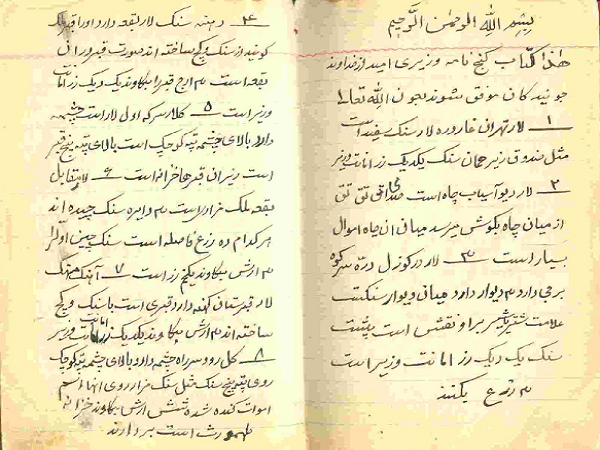 بسم الله الرحمن الرحیم
هذا کتاب گنج نامه وزیری امید از خداوند
جویندکان موفق شوند بعون الله تعالی
۱ لار تهران غار دره لار سنک سفید است
مثل صندوق زیر همان سنک یکدیک زر امانت وزیر
۲ لار دیو آسیاب چاه است صدای تق تق
از میان چاه بکوش میرسد میانی ان چاه اموال
بسیار است ۳ لار در کوزل درّه سر کوه
برجی دارد دیوار دارد میانی دیوار سنکست
علامت شیر بر او نقش است پشت
سنک یک دیک زر امانت وزیر است
زرع بکنند
۴ دهنه سنک لار بقعه دارد و او را ملک
کویند از سنک و کچ ساخته اند صورت قبر در ان
بقعه است قبر را بکاوند یک دیک زر امانت
وزیر است ۵ کلارسر که اول لار است چشمه
دارد بالای چشمه تپه کوچک است بالای تپه پنج قبر
است زیر ان قبرها خزانه است ۶ لار مقابل
بقعه ملک مزار است دایره سنک چیده اند
هر کدام ده زرع فاصله است سنک چین اول را
ارش بکاوند یکخم زر است ۷ لار
قبرستان کهنه دارد قبری است با سنک و کچ
ساخته اند ارش بکاوند یک دیک زر امانت وزیر
۸ کل رود سر راه چشمه دارد بالای چشمه تپه کوچک
روی تپه پنج سنک مثل سنک مزار روی انها اسم
اموات کنده شده شش ارش بکاوند خزانه
طهمورث است بردارند